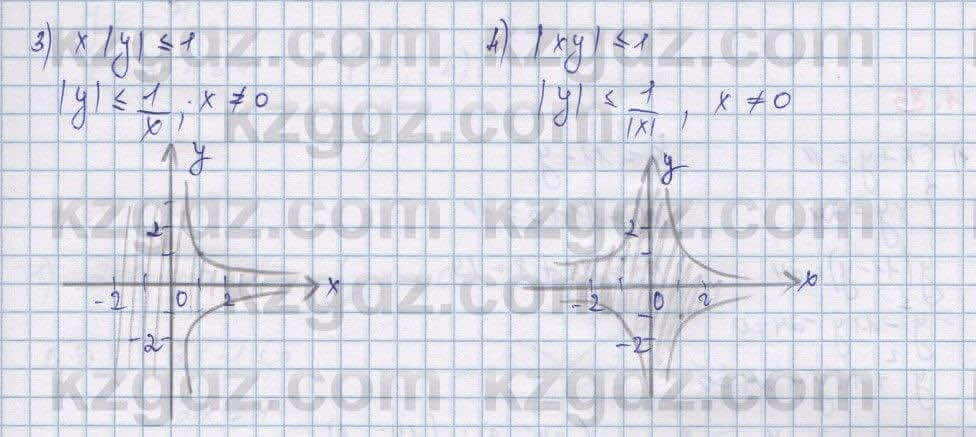 3) x |y| ≤ 1
|y| ≤ 1/x ; x ≠ 0
y
2
-2 0 2 x
-2
4) |xy| ≤ 1
|y| ≤ 1/|x| , x ≠ 0
y
2
-2 0 2 x
-2
kzgdz.com kzgdz.com
kzgdz.com
kzgdz.com kzgdz.com
kzgdz.com
kzgdz.com kzgdz.com